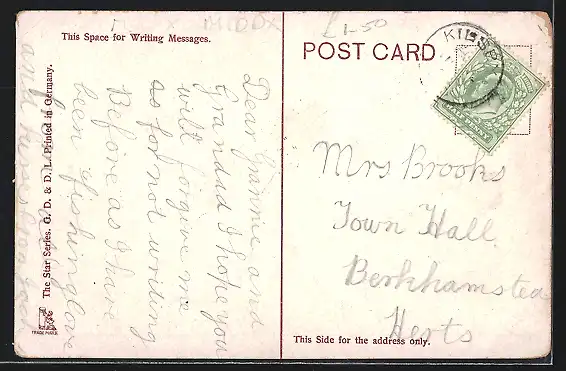 MIDDX
£1-50
This Space for Writing Messages.
POST CARD
KILSB
Dear Grannie and
Grandad I hope you
will forgive me
as for not writing.
Before as I have
been fishing love
and
The Star Series. G. D. & D. L. Printed in Germany.
TRADE MARK
Mrs Brooks
Town Hall.
Berkhamsted
Herts
This Side for the address only.